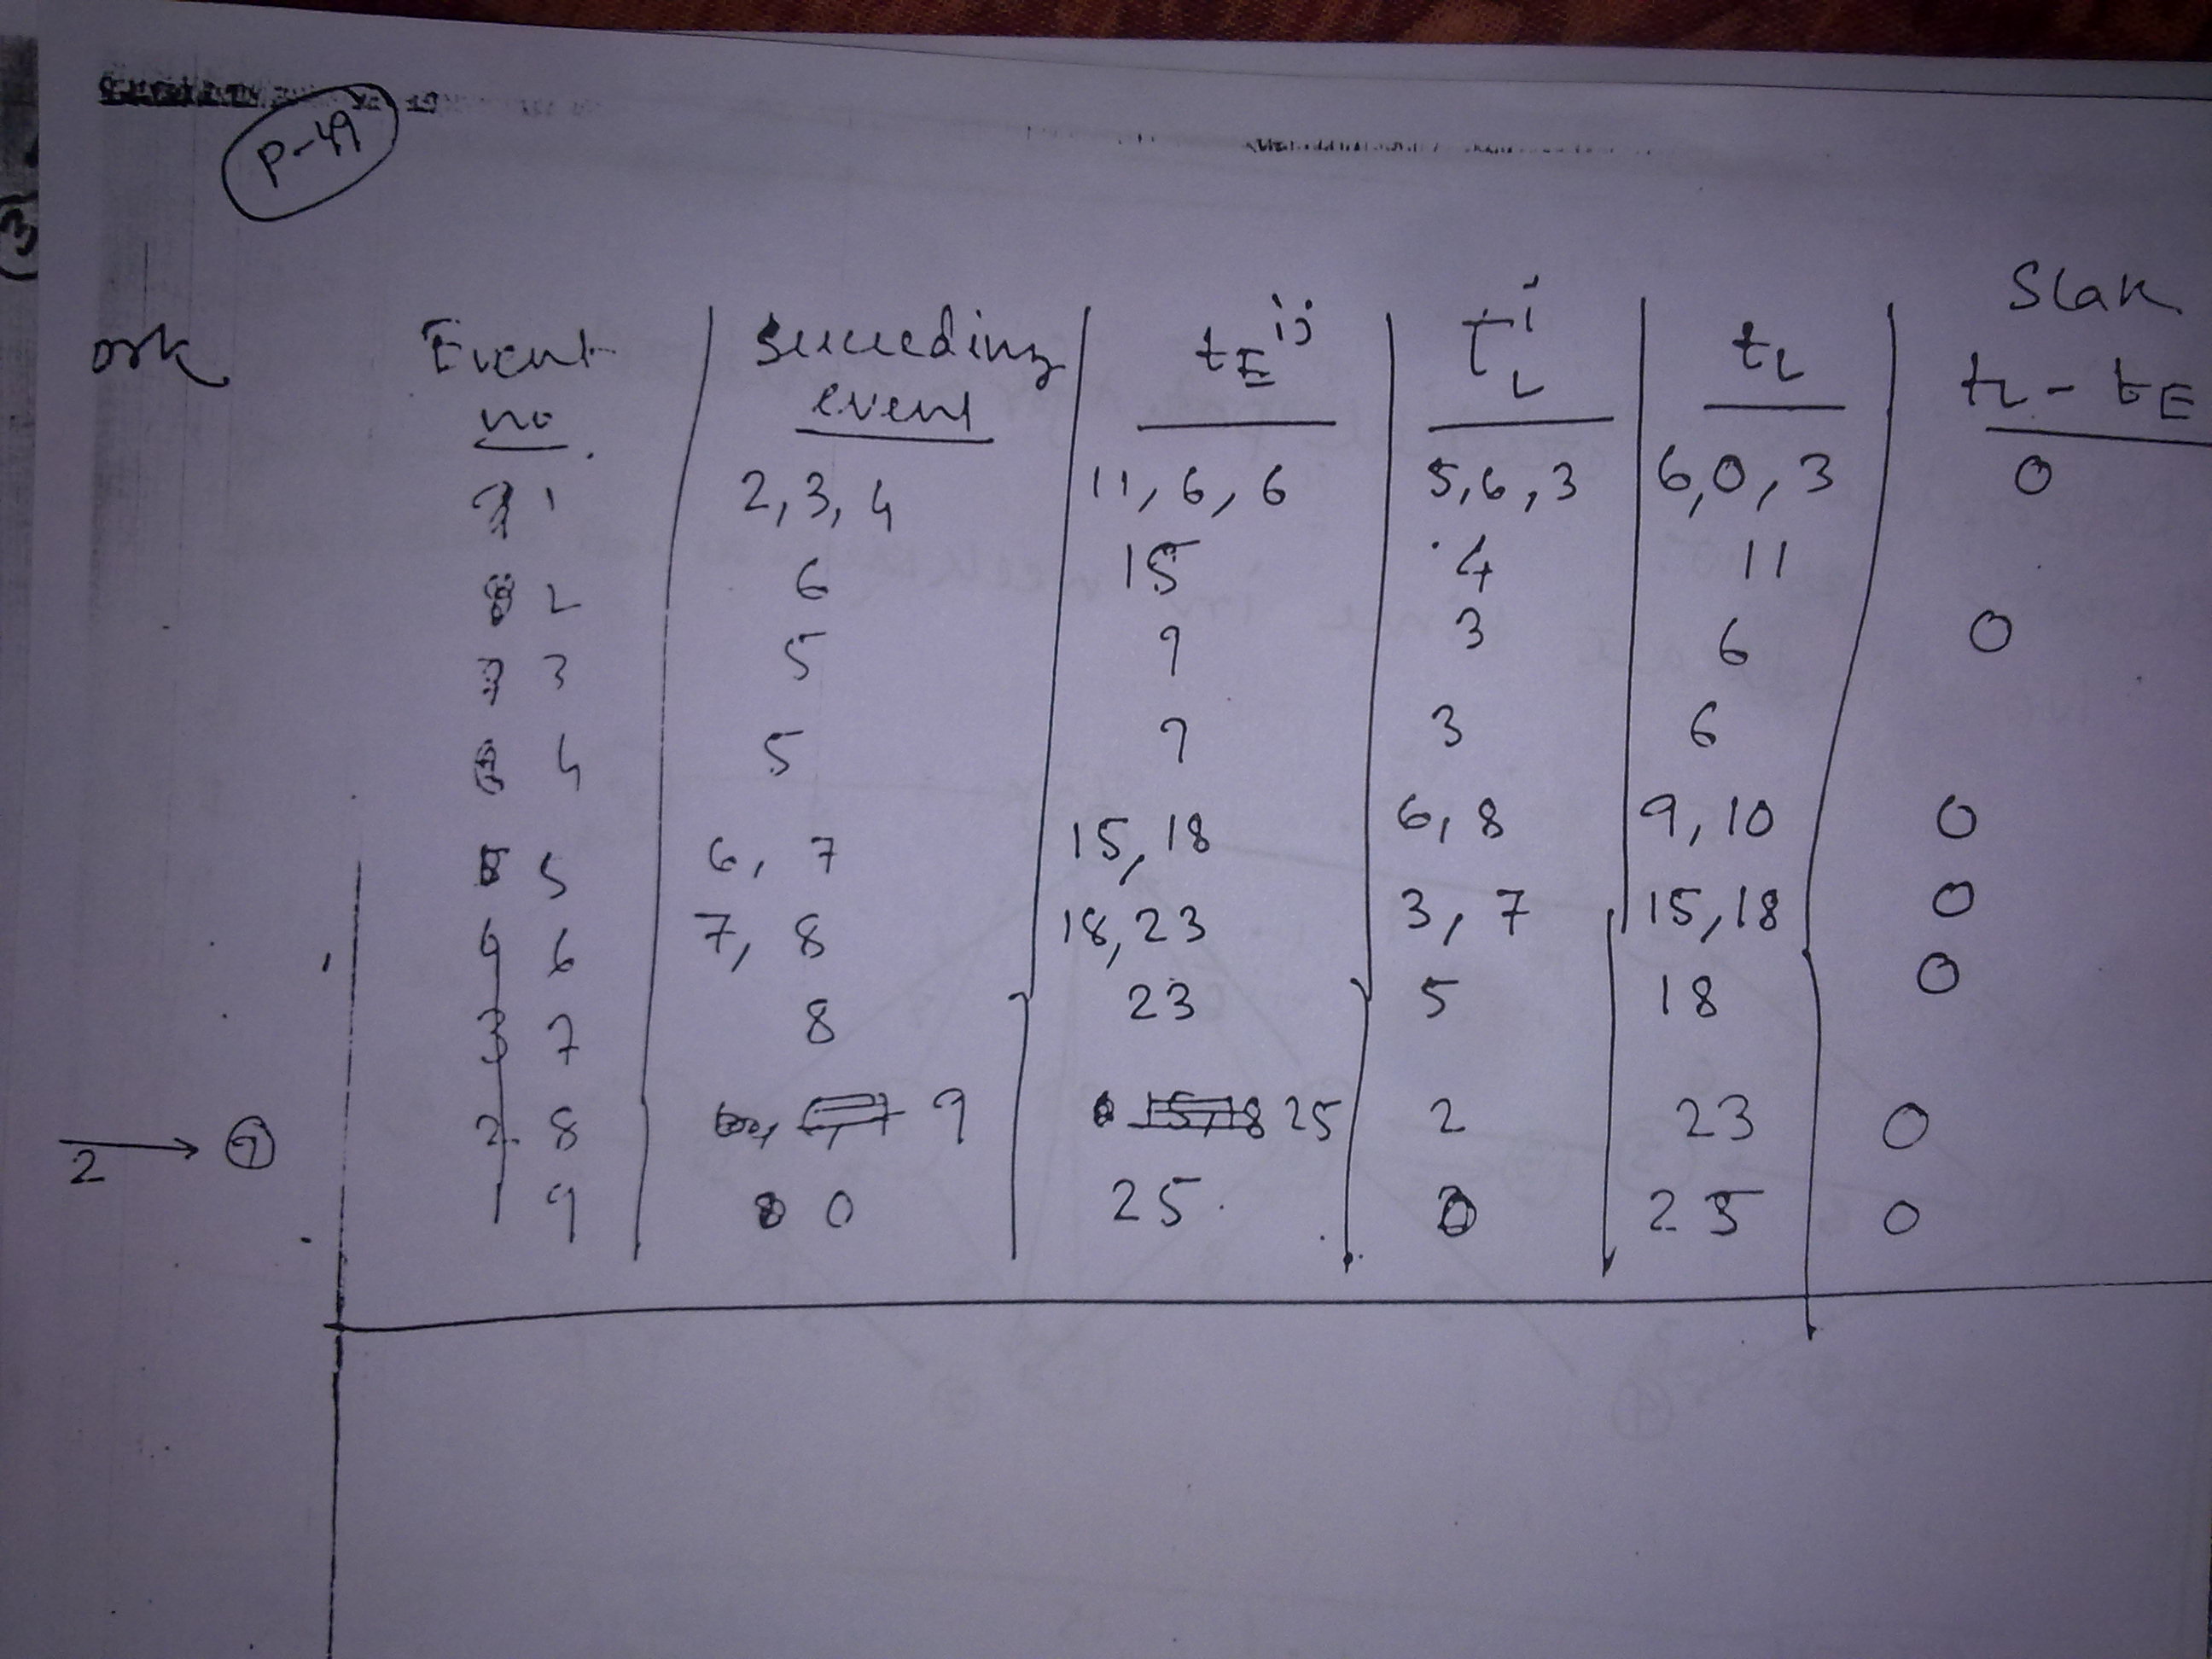 P-49
(3)
ork
Event no. | Succeeding event | tE ij | TL i | tL | Slak tL - tE
1 | 2, 3, 4 | 11, 6, 6 | 5, 6, 3 | 6, 0, 3 | 0
2 | 6 | 15 | 4 | 11
3 | 5 | 9 | 3 | 6 | 0
4 | 5 | 9 | 3 | 6
5 | 6, 7 | 15, 18 | 6, 8 | 9, 10 | 0
6 | 7, 8 | 18, 23 | 3, 7 | 15, 18 | 0
7 | 8 | 23 | 5 | 18 | 0
8 | 9 | 25 | 2 | 23 | 0
2 → 9
9 | 0 | 25 | 0 | 25 | 0